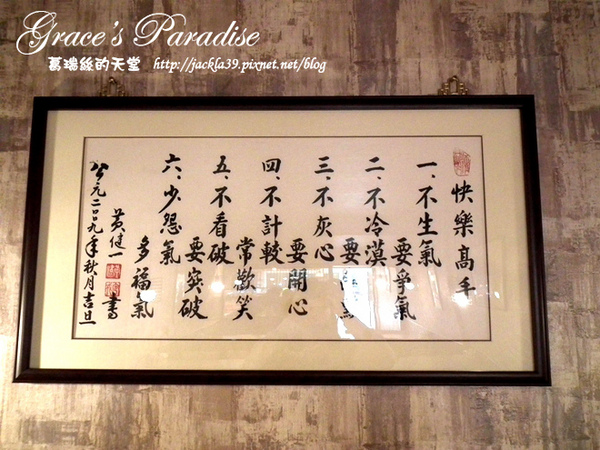 Grace's Paradise
葛瑞絲的天堂 http://jackla39.pixnet.net/blog
快樂高手
一、不生氣
要爭氣
二、不冷漠
要
三、不灰心
要開心
四、不計較
常歡笑
五、不看破
要突破
六、少怨氣
多福氣
黃健一書
公元二〇〇九年秋月吉旦